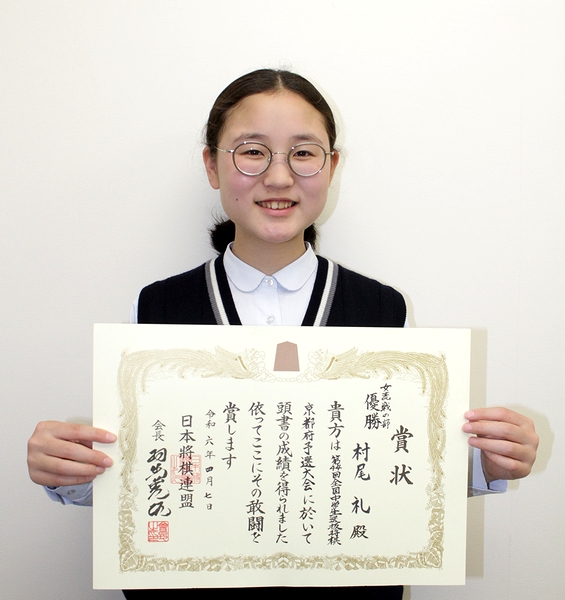 賞状
女王戦の部
優勝
村尾 礼 殿
貴方は第45回全国中学生選抜将棋
京都府予選大会に於いて
頭書の成績を得られました
依ってここにその敢闘を
賞します
令和六年四月七日
日本將棋連盟
会長 羽生善治